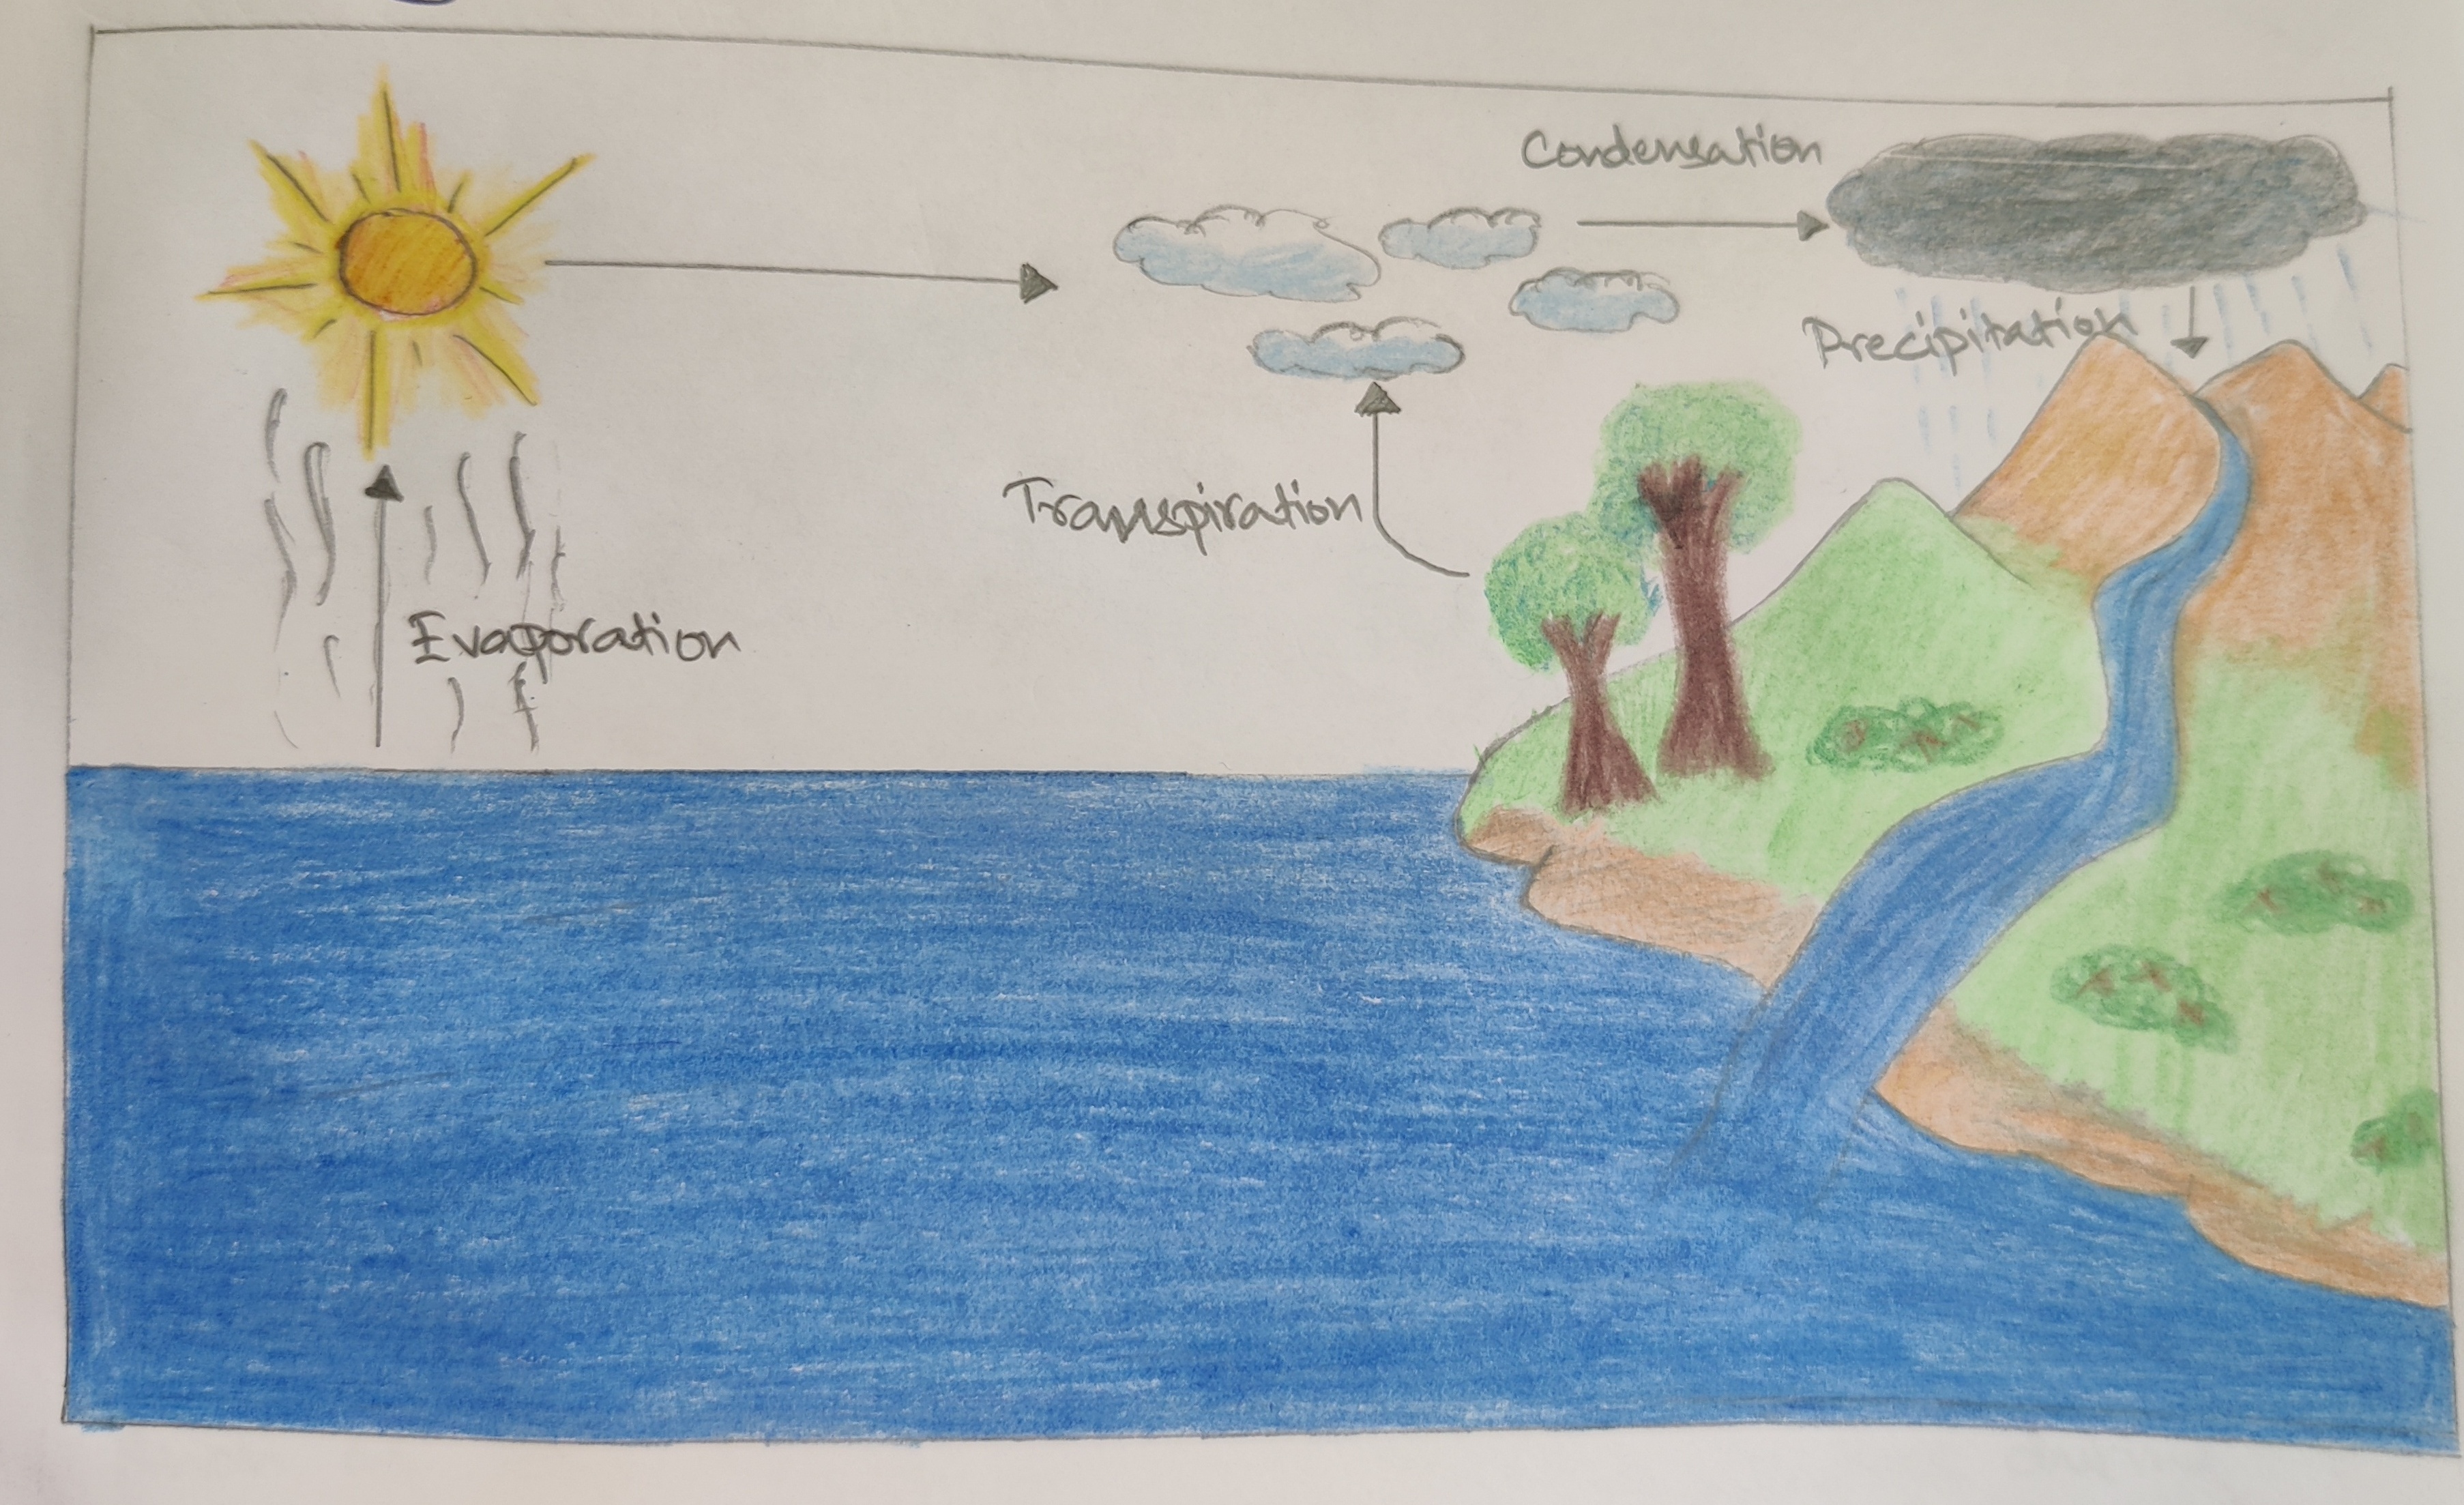 Condensation
Precipitation
Transpiration
Evaporation